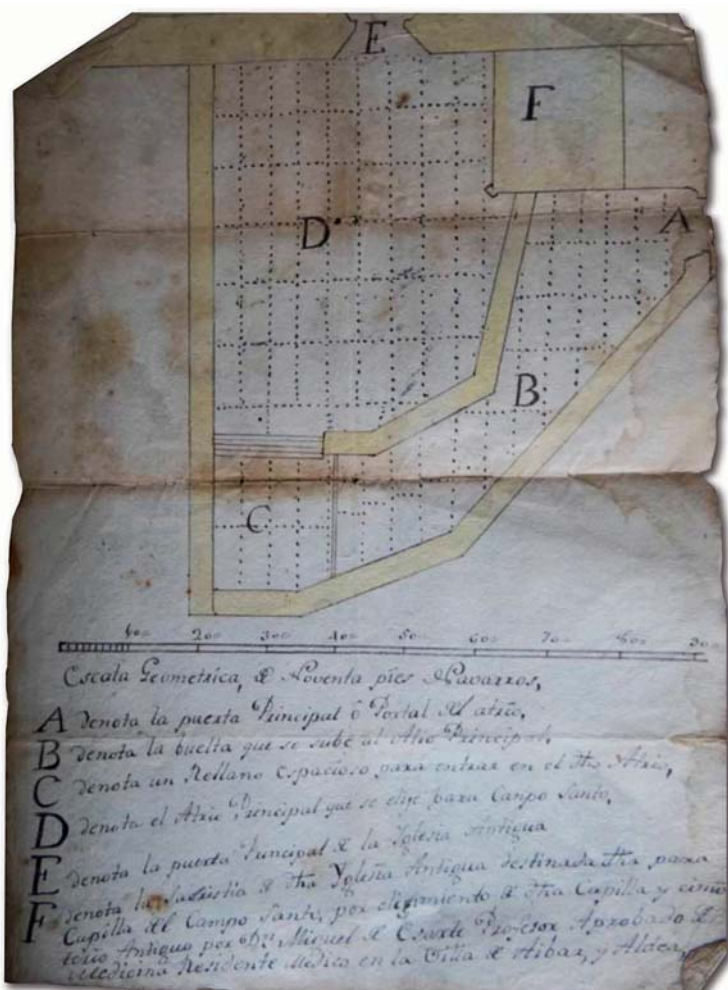 E
F
D.
A
B
C
10= 20= 30= 40= 50= 60= 70= 80= 90=
Escala Geometrica, de Noventa pies Navarros,
A denota la puerta Principal ô Portal del atrio,
B denota la buelta que se sube al Atio Principal.
C denota un Rellano espacioso para entrar en el dho Atrio,
D denota el Atrio Principal que se elije para Canpo Santo,
E denota la puerta Principal de la Yglesia Antigua
F denota la Sacristia de dha Yglesia Antigua destinada dha para
Capilla del Campo Santo, por elegimiento de dha Capilla y cimin
torio Antiguo por Dn Miguel de Esarte Profesor Aprobado de
Medicina Residente Medico en la Villa de Aibar, y Aldea,